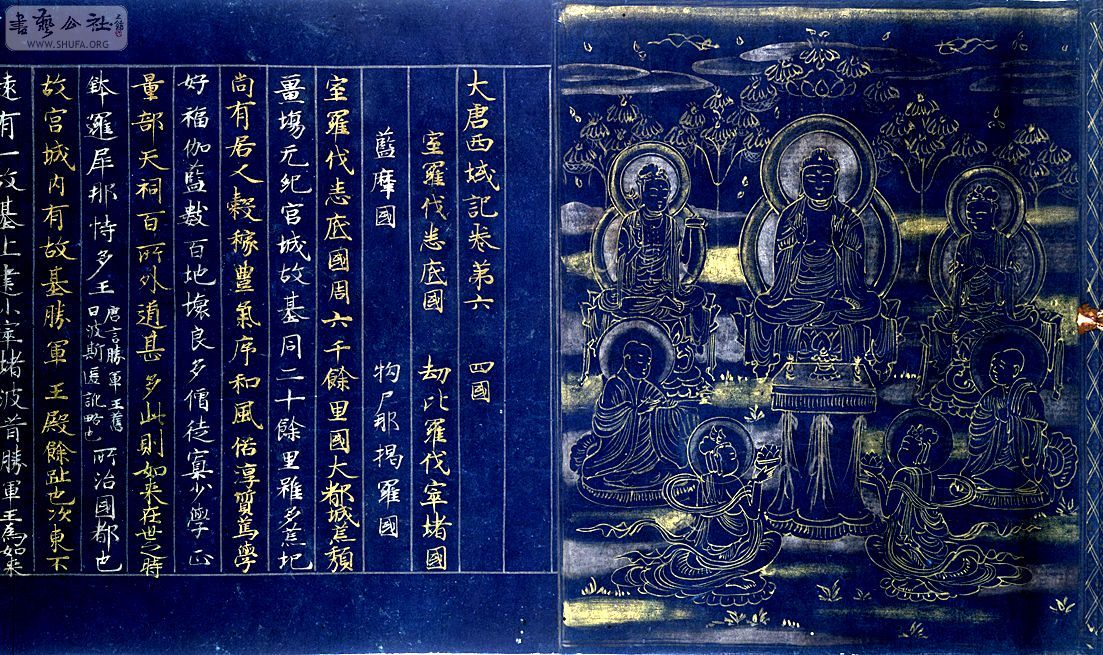 大唐西域記卷第六 四國
室羅伐悉底國 劫比羅伐窣堵國
藍摩國 拘尸那揭羅國
室羅伐悉底國周六千餘里國大都城荒頹
畺埸无紀宮城故基同二十餘里雖多荒圮
尚有居人穀稼豊氣序和風俗淳質篤學
好福伽藍數百圮壞良多僧徒寡少學正
量部天祠百所外道甚多此則如来在世之時
鉢邏犀那恃多王
唐言勝軍王舊
曰波斯匿訛略也
所治國都也
故宮城內有故基勝軍王殿餘趾也次東不
遠有一故基上建小窣堵波昔勝軍王為如来
書藝公社
WWW.SHUFA.ORG